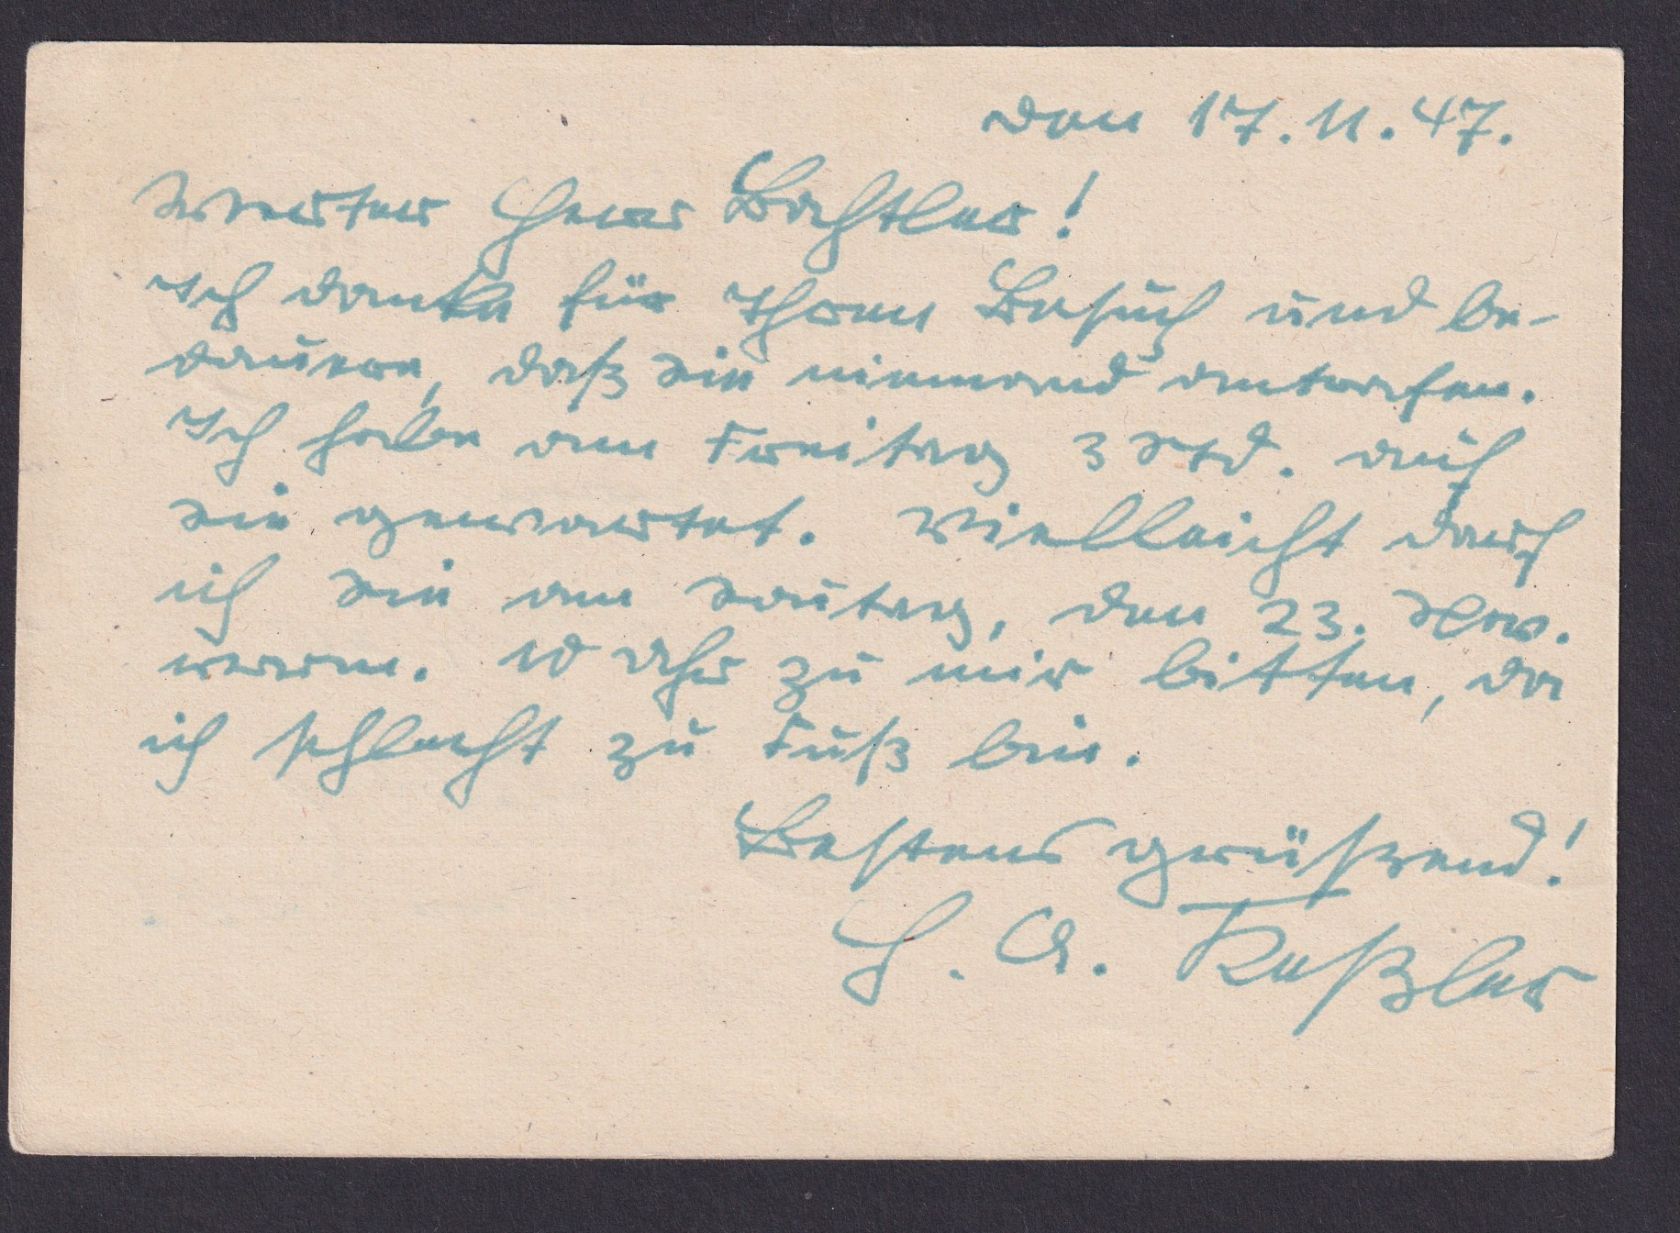 den 17.11.47.
Werter Herr Bachtler!
Ich danke für Ihren Besuch und be-
dauere, daß Sie niemand antrafen.
Ich habe am Freitag 3 Std. auf
Sie gewartet. Vielleicht darf
ich Sie am Sonntag, den 23. Nov.
vorm. 10 Uhr zu mir bitten, da
ich schlecht zu Fuß bin.
Bestens grüßend!
H. A. Keßler